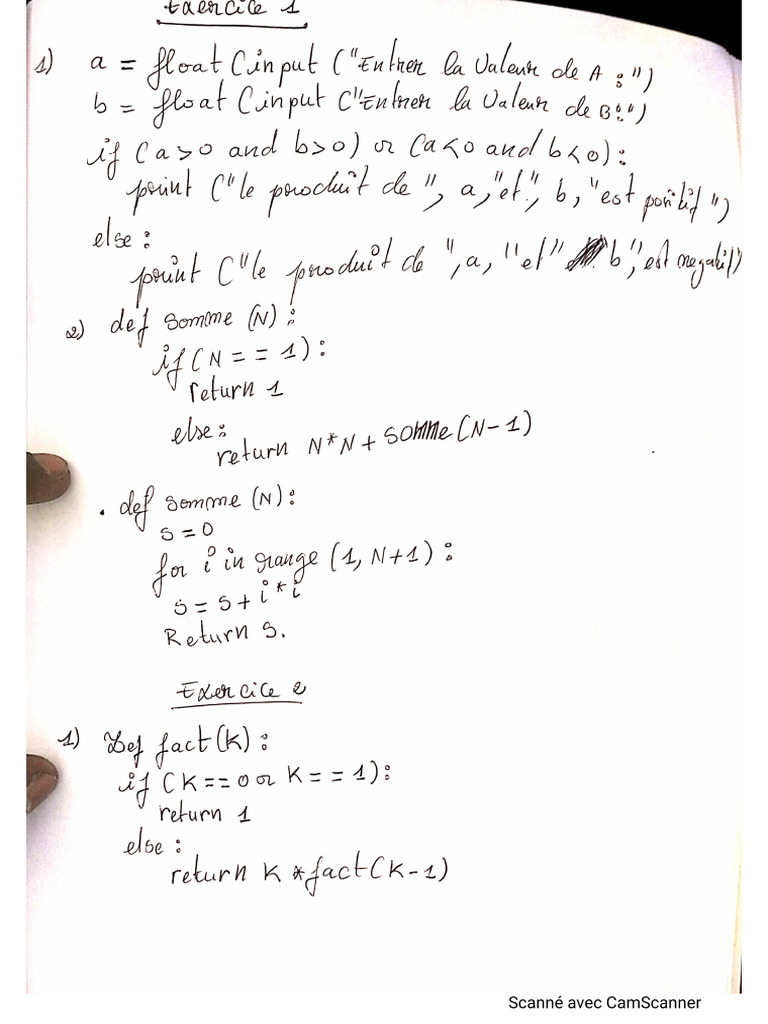 Exercice 1
1) a = float (input ("Entrer la valeur de A :")
b = float (input ("Entrer la valeur de B:")
if (a>0 and b>0) or (a<0 and b<0):
print ("le produit de ", a, "et", b, "est positif")
else:
print ("le produit de ", a, "et" b, "est negatif")
2) def somme (N):
if (N == 1):
return 1
else:
return N*N + somme (N-1)
. def somme (N):
s = 0
for i in range (1, N+1):
s = s + i*i
Return s.
Exercice 2
1) Def fact(K):
if (K == 0 or K == 1):
return 1
else:
return K *fact(K-1)
Scanné avec CamScanner